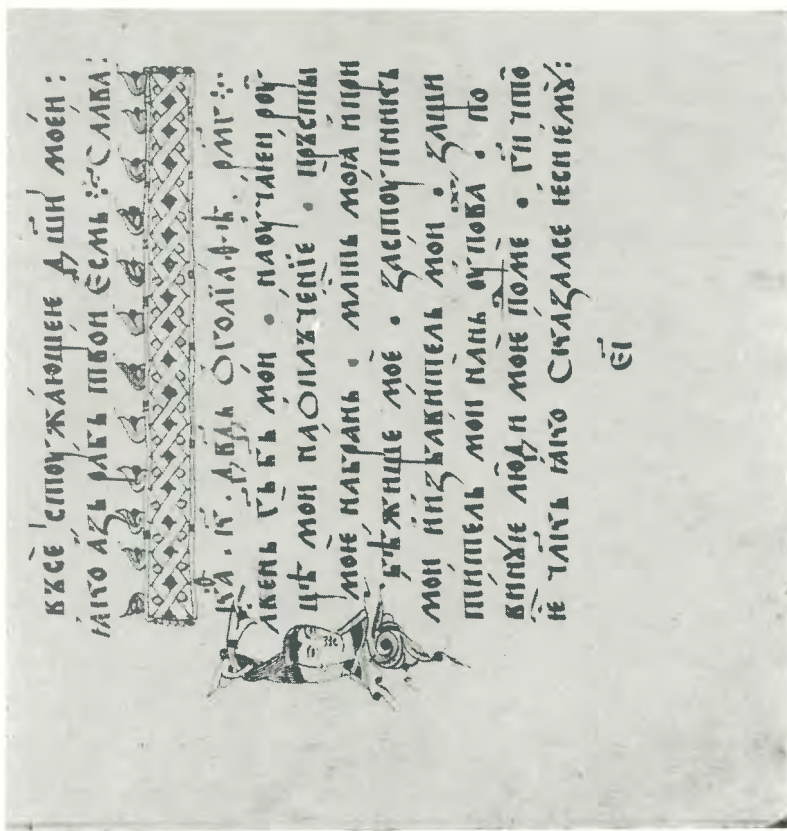 вꙿсѐ стоужа́ющеѥ дш҃и мое́и :
ꙗко азь рабь твои есмь ⁘ слава :
ка҃ . п҃ . дв҃дь о голїаѳѣ . рмг҃ ⁘
лвень г҃ь б҃ь мои . наоучаѥи роу
цѣ мои наопльче́нїе . прьсты
моѥ набрань . мл҃ть моꙗ и при
бѣжище моѐ . застоупникь
мои иизбавитель мои . защи
титель мои нань оупова . по
винꙋѥ люди моѥ по ме . г҃и что
ѥ чл҃кь ꙗко сказалсе ѥси ѥмꙋ :
еі҃